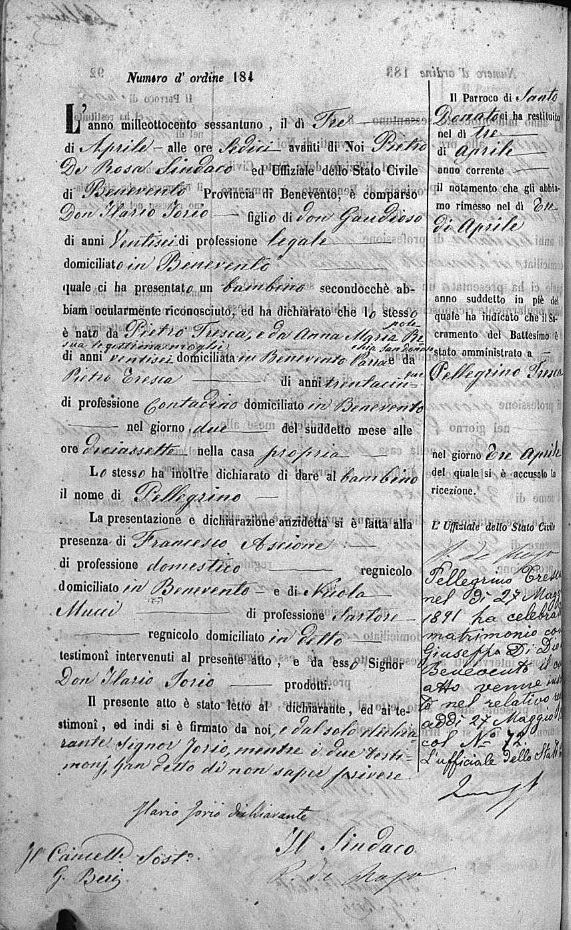 Numero d' ordine 184
L'anno milleottocento sessantuno, il dì Tre
di Aprile alle ore Sedici avanti di Noi Pietro
De Rosa Sindaco ed Uffiziale dello Stato Civile
di Benevento Provincia di Benevento, è comparso
Don Ilario Iorio figlio di don Gaudioso
di anni Ventisei di professione legale
domiciliato in Benevento
quale ci ha presentato un bambino secondocchè ab-
biam ocularmente riconosciuto, ed ha dichiarato che lo stesso
è nato da Pietro Tresca, e da Anna Maria
sua legittima moglie
di anni ventisei domiciliata in Benevento e da
Pietro Tresca di anni trentacin
di professione Contadino domiciliato in Benevento
nel giorno due del suddetto mese alle
ore diciassette nella casa propria
Lo stesso ha inoltre dichiarato di dare al bambino
il nome di Pellegrino
La presentazione e dichiarazione anzidetta si è fatta alla
presenza di Francesco Ascione
di professione domestico regnicolo
domiciliato in Benevento e di Nicola
Mucci di professione Sartore
regnicolo domiciliato in detto
testimoni intervenuti al presente atto, e da esso Signor
Don Ilario Iorio prodotti.
Il presente atto è stato letto al dichiarante, ed ai te-
stimoni, ed indi si è firmato da noi, e dal solo dichia
rante Signor Iorio, mentre i due testi-
monj han detto di non saper scrivere
Ilario Iorio dichiarante
Il Cancell. Sost.
Il Sindaco
Il Parroco di Santo
Donato ci ha restituito
nel dì tre
di Aprile
anno corrente
il notamento che gli abbia-
mo rimesso nel dì Tre
di Aprile
anno suddetto in piè del
quale ha indicato che il Sa-
cramento del Battesimo è
stato amministrato a
Pellegrino Tresca
nel giorno tre Aprile
del quale si è accusato la
ricezione.
L' Uffiziale dello Stato Civile
Pellegrino Tresca
nel dì 27 Magg
1891 ha celebra
matrimonio con
Giuseppa Di Dio
Benevento il c
atto venne ins
tà nel relativo
addì 27 Maggio
col N.º 72.
L'uffiziale dello Stato